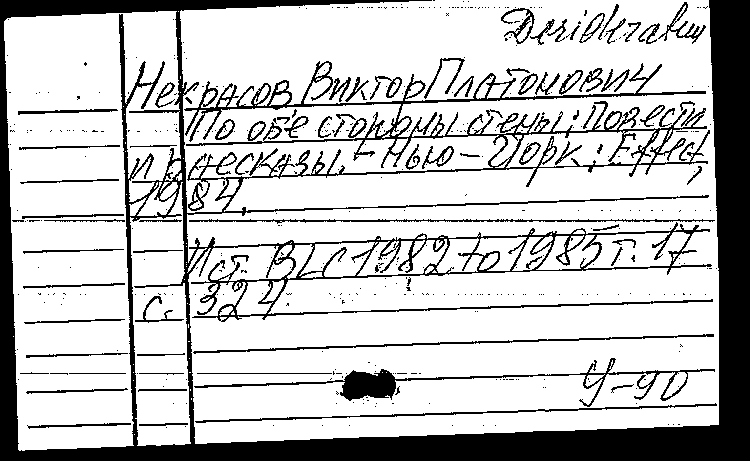 Desiderata
Некрасов Виктор Платонович
По обе стороны стены: Повести
и рассказы. - Нью-Йорк: Effect,
1984.
Ист. BLC 1982 to 1985 т. 17
с. 324.
У-90